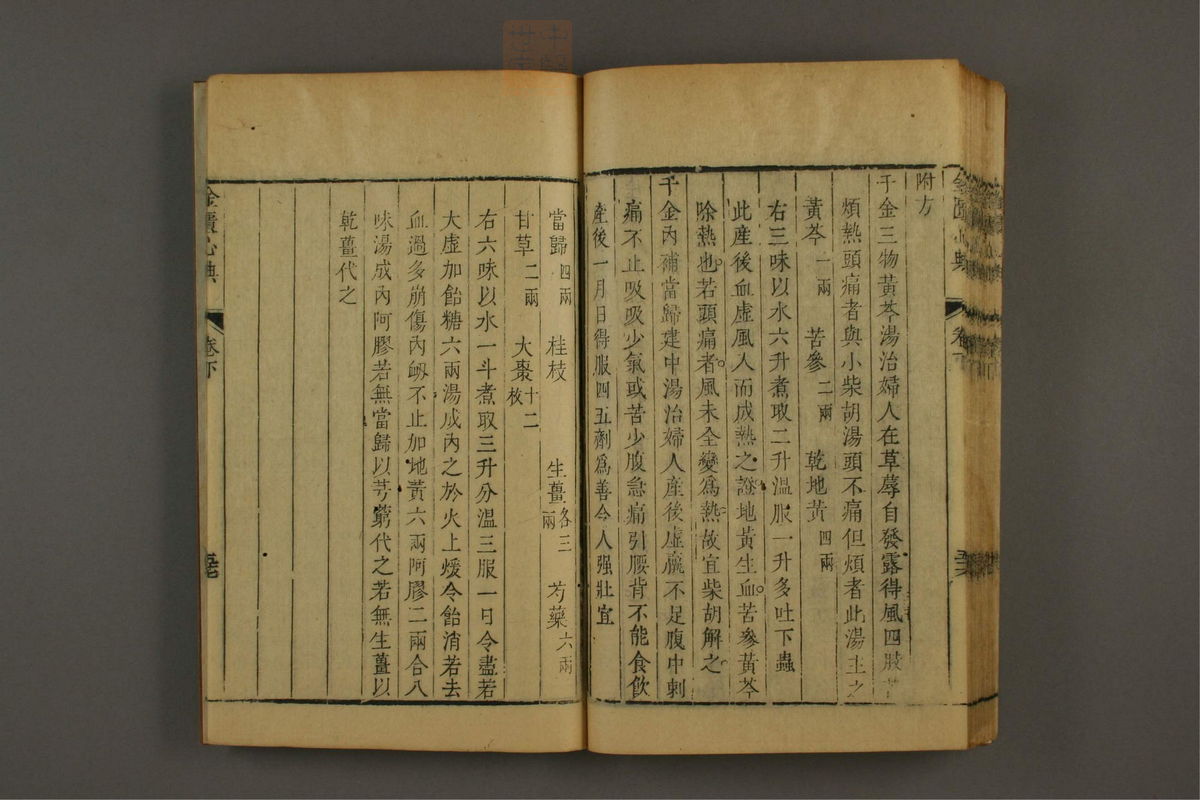 金匱心典 卷下
附方
千金三物黃芩湯治婦人在草蓐自發露得風四肢苦
煩熱頭痛者與小柴胡湯頭不痛但煩者此湯主之
黃芩一兩 苦參二兩 乾地黃四兩
右三味以水六升煮取二升溫服一升多吐下蟲
此產後血虛風入而成熱之證地黃生血苦參黃芩
除熱也若頭痛者風未全變爲熱故宜柴胡解之
千金內補當歸建中湯治婦人產後虛羸不足腹中刺
痛不止吸吸少氣或苦少腹急痛引腰背不能食飲
產後一月日得服四五劑爲善令人强壯宜
當歸四兩 桂枝 生薑各三兩 芍藥六兩
甘草二兩 大棗十二枚
右六味以水一斗煮取三升分溫三服一日令盡若
大虛加飴糖六兩湯成內之於火上煖令飴消若去
血過多崩傷內衂不止加地黃六兩阿膠二兩合八
味湯成內阿膠若無當歸以芎藭代之若無生薑以
乾薑代之
金匱心典 卷下